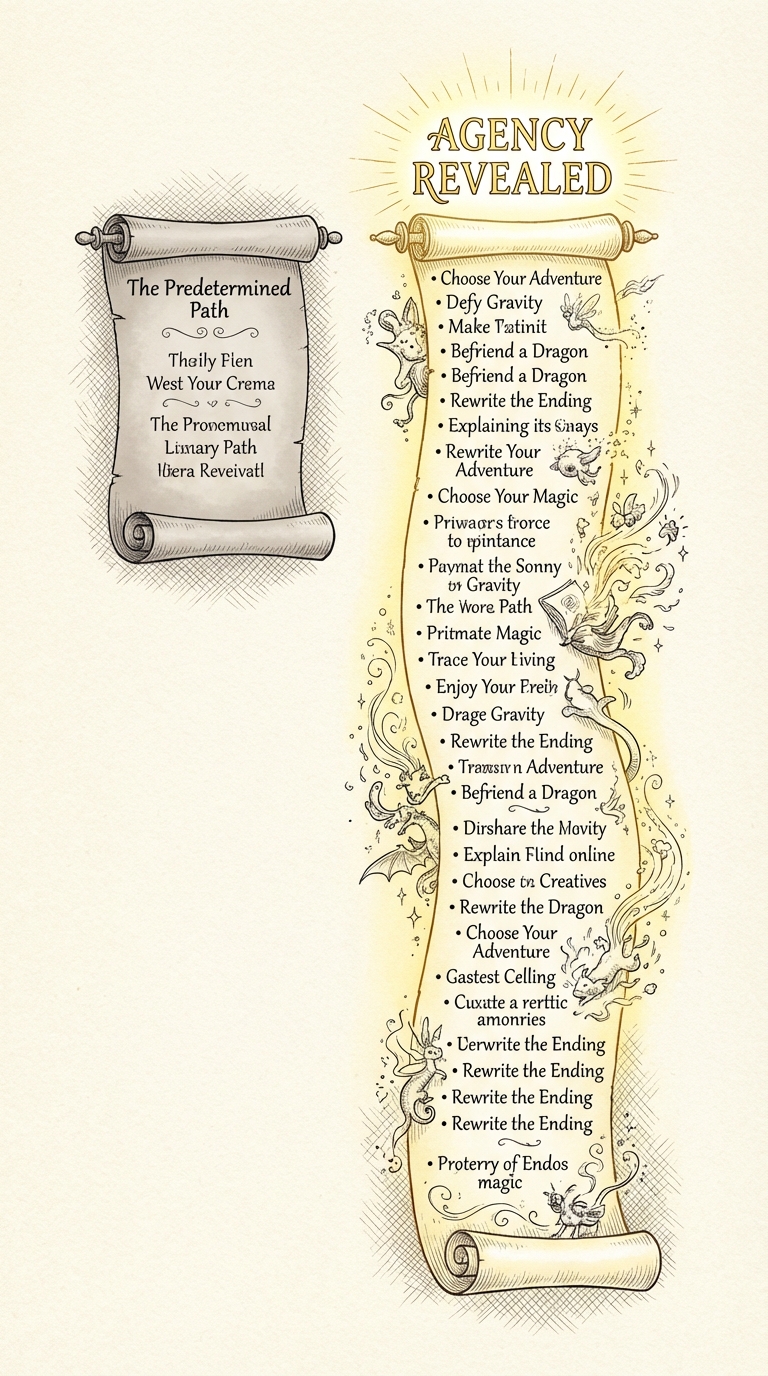 The Predetermined
Path
West Your Crema
The
Path
AGENCY
REVEALED
• Choose Your Adventure
• Defy Gravity
• Make
• Befriend a Dragon
• Befriend a Dragon
• Rewrite the Ending
• Explaining its
• Rewrite Your
Adventure
• Choose Your Magic
• force
to
• the Sonny
Gravity
• The Path
• Pritmate Magic
• Trace Your Living
• Enjoy Your
• Drage Gravity
• Rewrite the Ending
• Adventure
• Befriend a Dragon
• Dirshare the Movity
• Explain Flind online
• Choose Creatives
• Rewrite the Dragon
• Choose Your
Adventure
• Gastest Celling
• a
amonries
• Uerwrite the Ending
• Rewrite the Ending
• Rewrite the Ending
• Rewrite the Ending
• Proterry of Endos
magic